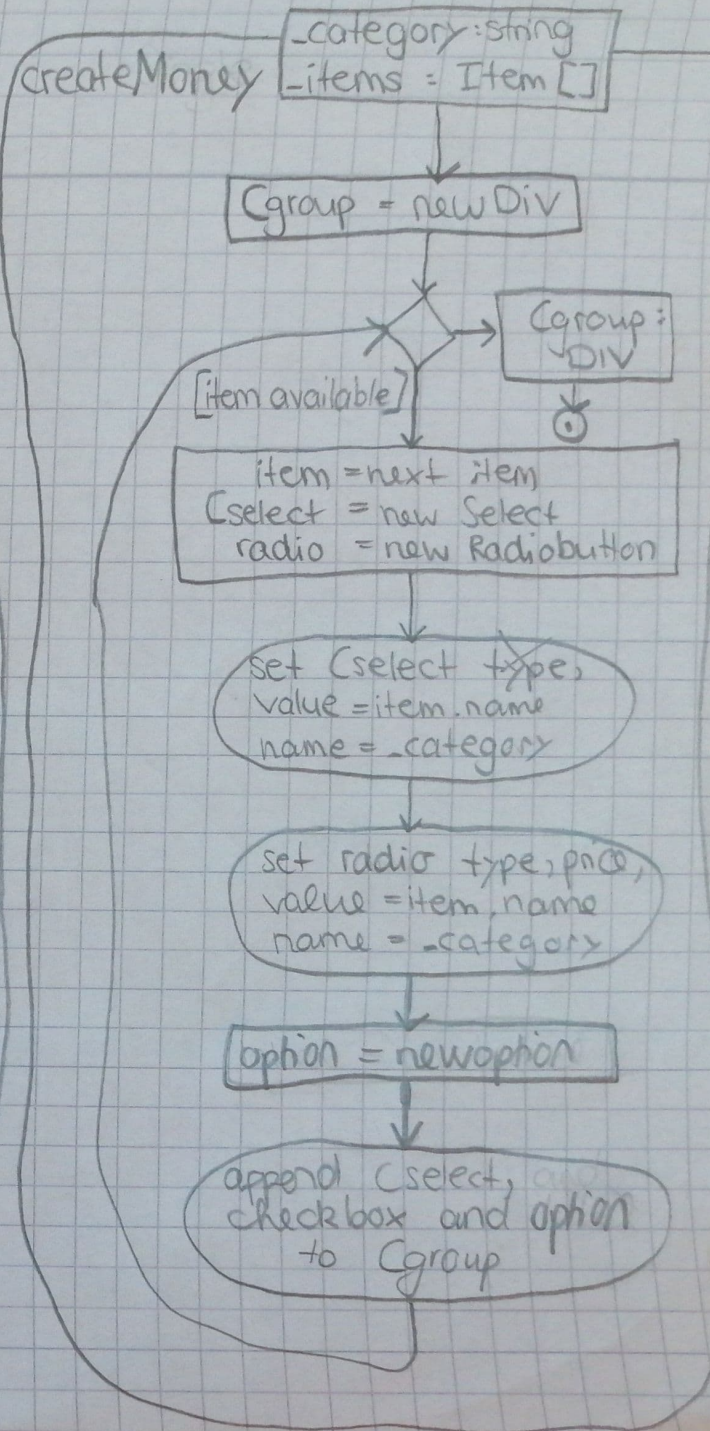 _category:string
createMoney
_items : Item []
Cgroup = new Div
Cgroup:
DIV
[item available]
item = next item
Cselect = new Select
radio = new Radiobutton
set Cselect type,
value = item.name
name = _category
set radio type, price,
value = item.name
name = _category
option = new option
append Cselect,
checkbox and option
to Cgroup